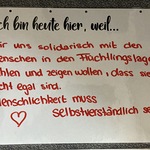 ch bin heute hier, weil...
ir uns solidarisch mit den
enschen in den Flüchtlingslage
hlen und zeigen wollen, dass sie
cht egal sind.
enschlichkeit muss
selbstverständlich se